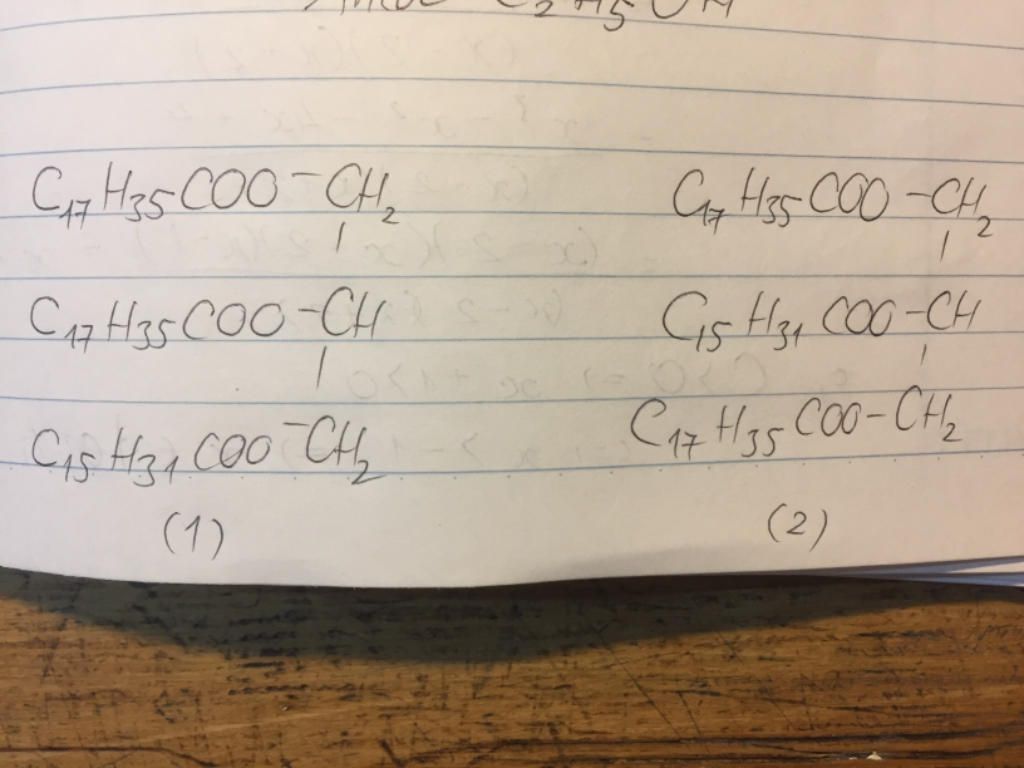 C2H5OH
C17H35COO-CH2 C17H35COO-CH2
| |
C17H35COO-CH C15H31COO-CH
| |
C15H31COO-CH2 C17H35COO-CH2
(1) (2)